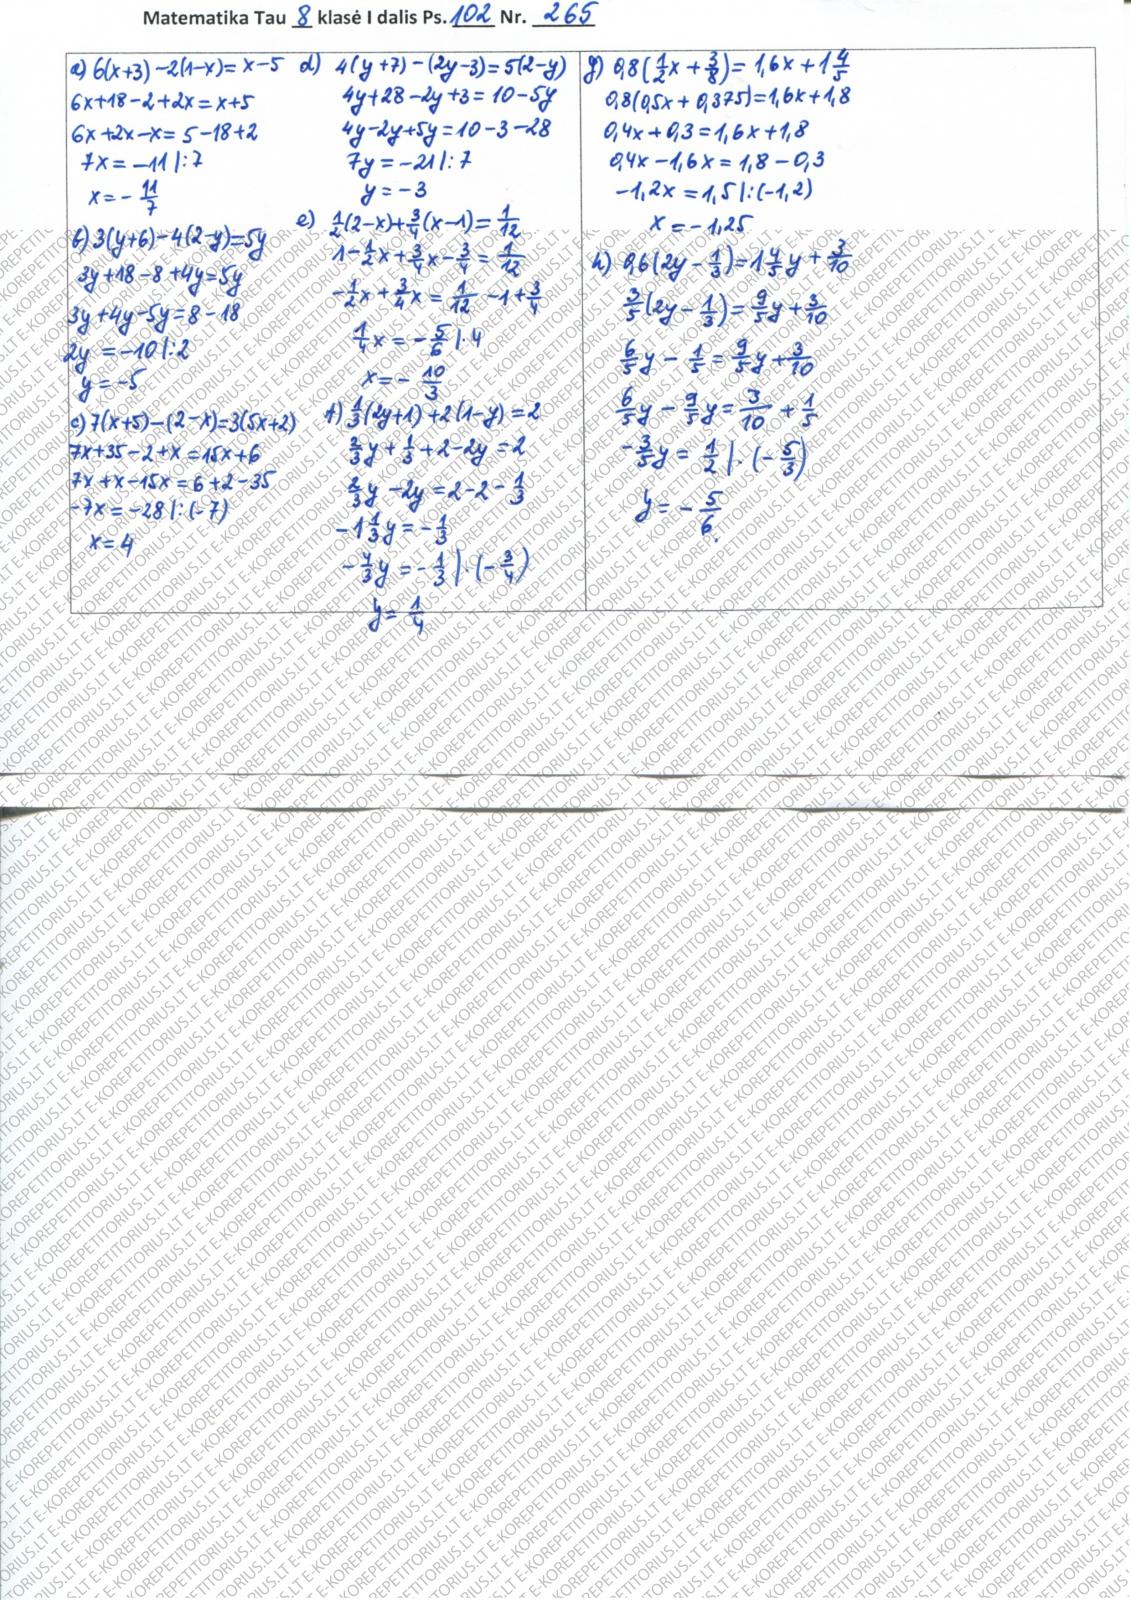 Matematika Tau 8 klasė I dalis Ps. 102 Nr. 265
a) 6(x+3)-2(1-x)= x-5
6x+18-2+2x=x+5
6x+2x-x= 5-18+2
7x=-11 |:7
x=-11/7
b) 3(y+6)-4(2-y)=5y
3y+18-8+4y=5y
3y+4y-5y=8-18
2y =-10 |:2
y=-5
c) 7(x+5)-(2-x)=3(5x+2)
7x+35-2+x=15x+6
7x+x-15x=6+2-35
-7x=-28 |:(-7)
x=4
d) 4(y+7)-(2y-3)=5(2-y)
4y+28-2y+3=10-5y
4y-2y+5y=10-3-28
7y=-21 |:7
y=-3
e) 1/2(2-x)+3/4(x-1)=1/12
1-1/2x+3/4x-3/4=1/12
-1/2x+3/4x=1/12-1+3/4
1/4x=-5/6 |·4
x=-10/3
f) 1/3(2y+1)+2(1-y)=2
2/3y+1/3+2-2y=2
2/3y-2y=2-2-1/3
-1 1/3y=-1/3
-4/3y=-1/3 |·(-3/4)
y=1/4
g) 0,8(1/2x+3/8)=1,6x+1 4/5
0,8(0,5x+0,375)=1,6x+1,8
0,4x+0,3=1,6x+1,8
0,4x-1,6x=1,8-0,3
-1,2x=1,5 |:(-1,2)
x=-1,25
h) 0,6(2y-1/3)=1 4/5y+3/10
3/5(2y-1/3)=9/5y+3/10
6/5y-1/5=9/5y+3/10
6/5y-9/5y=3/10+1/5
-3/5y=1/2 |·(-5/3)
y=-5/6.
E-KOREPETITORIUS.LT